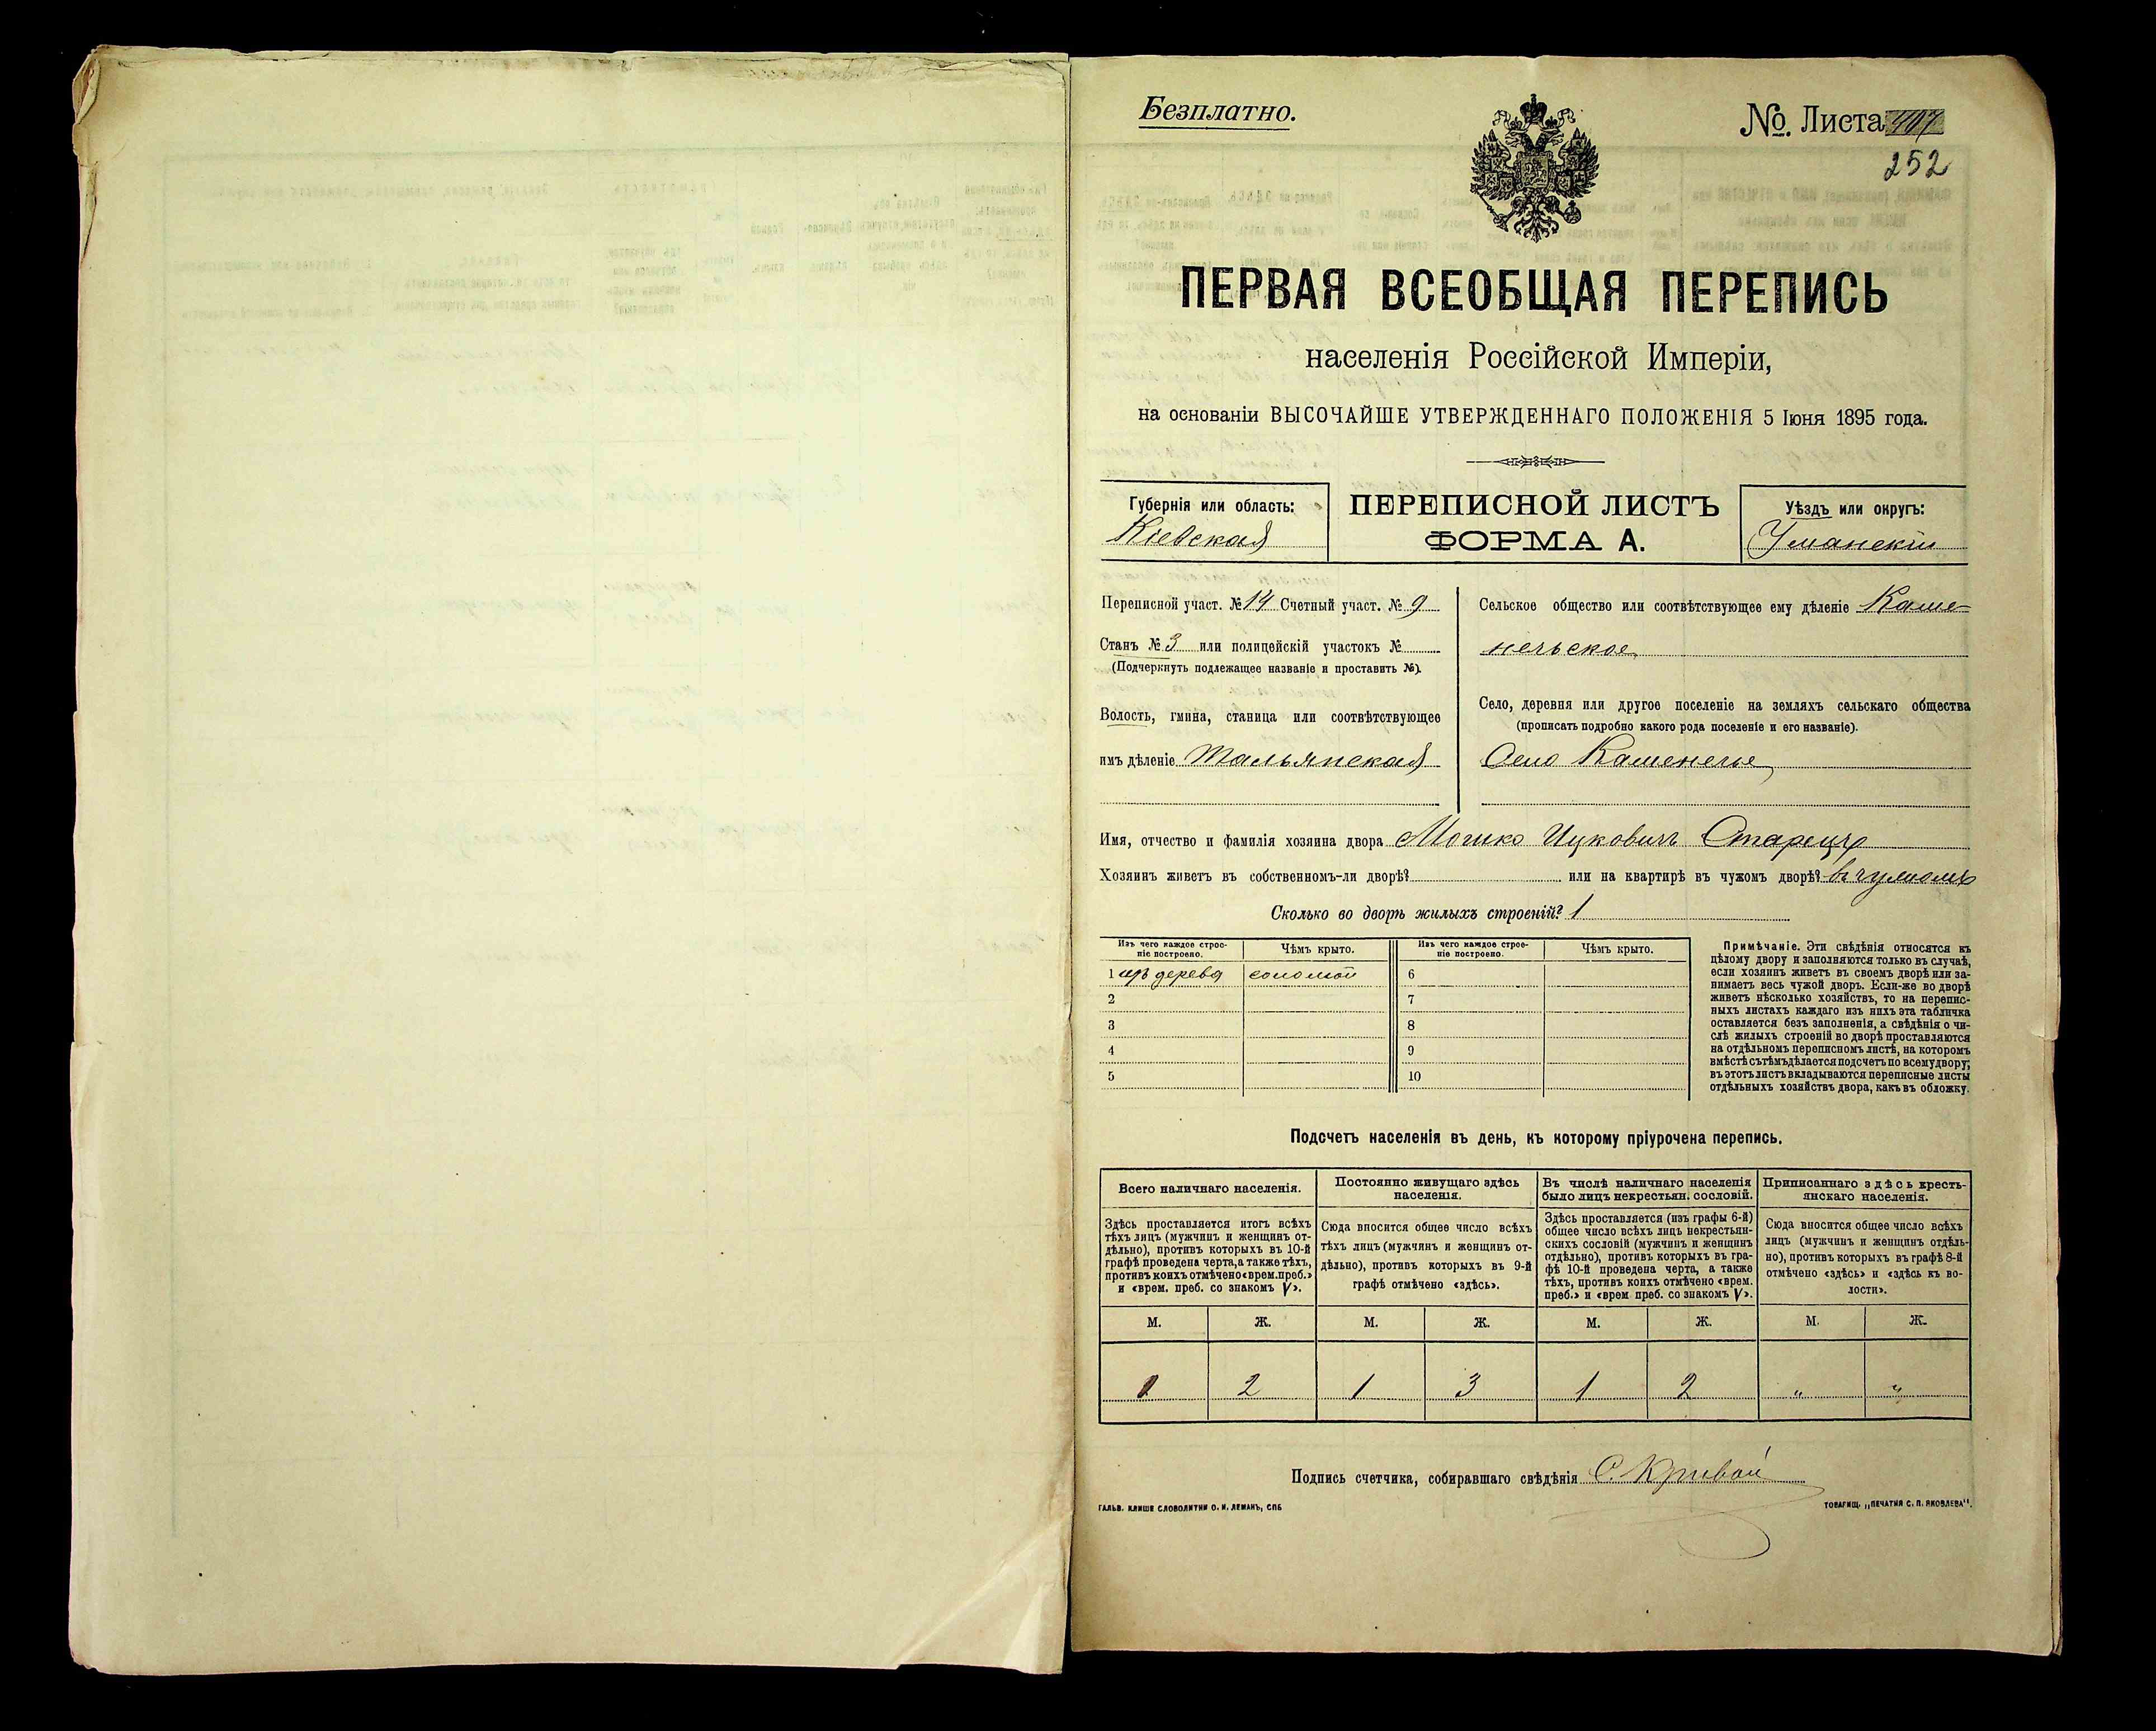 Безплатно.
№ Листа 407
252
ПЕРВАЯ ВСЕОБЩАЯ ПЕРЕПИСЬ
населенія Россійской Имперіи,
на основаніи ВЫСОЧАЙШЕ УТВЕРЖДЕННАГО ПОЛОЖЕНІЯ 5 Іюня 1895 года.
Губернія или область:
Кіевская
ПЕРЕПИСНОЙ ЛИСТЪ
ФОРМА А.
Уѣздъ или округъ:
Уманскій
Переписной участ. № 14 Счетный участ. № 9
Станъ № 3 или полицейскій участокъ №
(Подчеркнуть подлежащее названіе и проставить №).
Волость, гмина, станица или соотвѣтствующее
имъ дѣленіе Тальянская
Сельское общество или соотвѣтствующее ему дѣленіе Каме-
нечьское
Село, деревня или другое поселеніе на земляхъ сельскаго общества
(прописать подробно какого рода поселеніе и его названіе).
Село Каменечье
Имя, отчество и фамилія хозяина двора Мошко Ицковичъ Старецъ
Хозяинъ живетъ въ собственномъ-ли дворѣ? или на квартирѣ въ чужомъ дворѣ? въ чужомъ
Сколько во дворѣ жилыхъ строеній? 1
Изъ чего каждое строе-
ніе построено.
Чѣмъ крыто.
Изъ чего каждое строе-
ніе построено.
Чѣмъ крыто.
1 изъ дерева соломой 6
2 7
3 8
4 9
5 10
Примѣчаніе. Эти свѣдѣнія относятся къ
цѣлому двору и заполняются только въ случаѣ,
если хозяинъ живетъ въ своемъ дворѣ или за-
нимаетъ весь чужой дворъ. Если-же во дворѣ
живетъ нѣсколько хозяйствъ, то на перепис-
ныхъ листахъ каждаго изъ нихъ эта табличка
оставляется безъ заполненія, а свѣдѣнія о чи-
слѣ жилыхъ строеній во дворѣ проставляются
на отдѣльномъ переписномъ листѣ, на которомъ
вмѣстѣ съ тѣмъ дѣлается подсчетъ по всему двору;
въ этотъ листъ вкладываются переписные листы
отдѣльныхъ хозяйствъ двора, какъ въ обложку.
Подсчетъ населенія въ день, къ которому пріурочена перепись.
Всего наличнаго населенія.
Здѣсь проставляется итогъ всѣхъ
тѣхъ лицъ (мужчинъ и женщинъ от-
дѣльно), противъ которыхъ въ 10-й
графѣ проведена черта, а также тѣхъ,
противъ коихъ отмѣчено «врем. преб.»
и «врем. преб. со знакомъ V».
Постоянно живущаго здѣсь
населенія.
Сюда вносится общее число всѣхъ
тѣхъ лицъ (мужчинъ и женщинъ от-
дѣльно), противъ которыхъ въ 9-й
графѣ отмѣчено «здѣсь».
Въ числѣ наличнаго населенія
было лицъ некрестьян. сословій.
Здѣсь проставляется (изъ графы 6-й)
общее число всѣхъ лицъ некрестьян-
скихъ сословій (мужчинъ и женщинъ
отдѣльно), противъ которыхъ въ гра-
фѣ 10-й проведена черта, а также
тѣхъ, противъ коихъ отмѣчено «врем.
преб.» и «врем. преб. со знакомъ V».
Приписаннаго здѣсь кресть-
янскаго населенія.
Сюда вносится общее число всѣхъ
лицъ (мужчинъ и женщинъ отдѣль-
но), противъ которыхъ въ графѣ 8-й
отмѣчено «здѣсь» и «здѣсь къ во-
лости».
М. Ж. М. Ж. М. Ж. М. Ж.
2 1 3 1 2 „ „
Подпись счетчика, собиравшаго свѣдѣнія С. Кривой
ГАЛЬВ. КЛИШЕ СЛОВОЛИТНИ О. И. ЛЕМАНЪ, СПБ
ТОВАРИЩ. „ПЕЧАТНЯ С. П. ЯКОВЛЕВА".